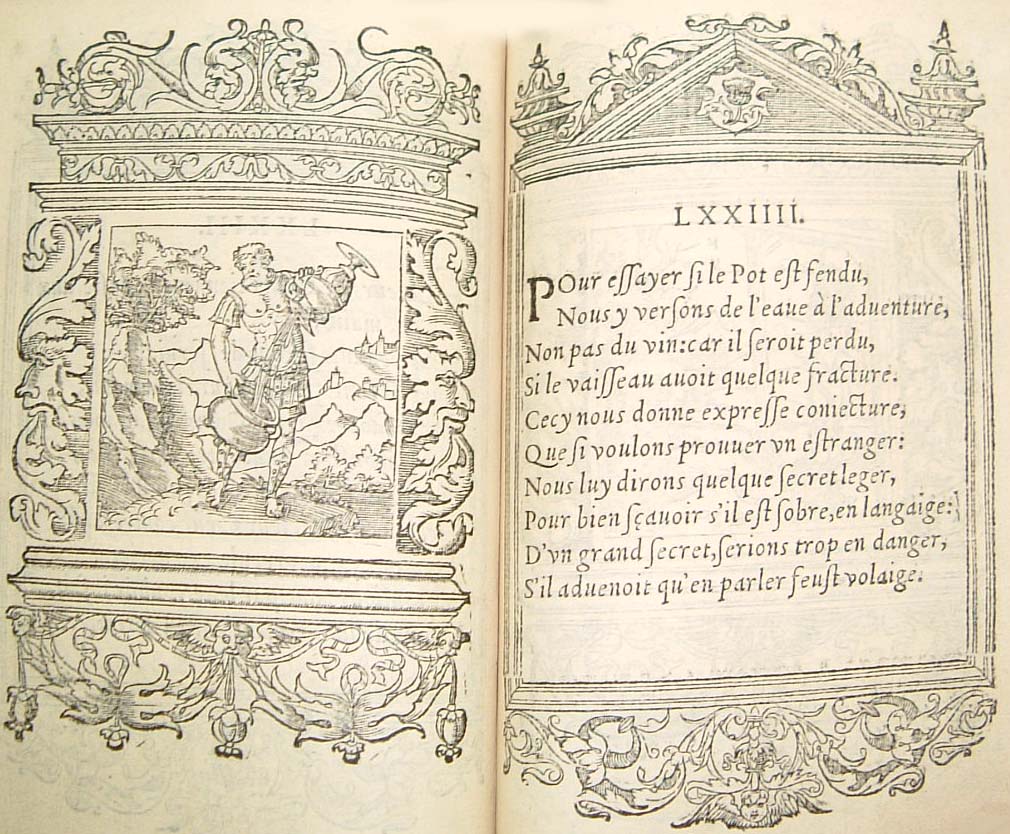 LXXIIII.
POur eſſayer ſi le Pot eſt fendu,
Nous y verſons de l'eaue à l'aduenture,
Non pas du vin: car il ſeroit perdu,
Si le vaiſſeau auoit quelque fracture.
Cecy nous donne expreſſe coniecture,
Que ſi voulons prouuer vn eſtranger:
Nous luy dirons quelque ſecret leger,
Pour bien ſçauoir s'il eſt ſobre, en langaige:
D'vn grand ſecret, ſerions trop en danger,
S'il aduenoit qu'en parler feuſt volaige.